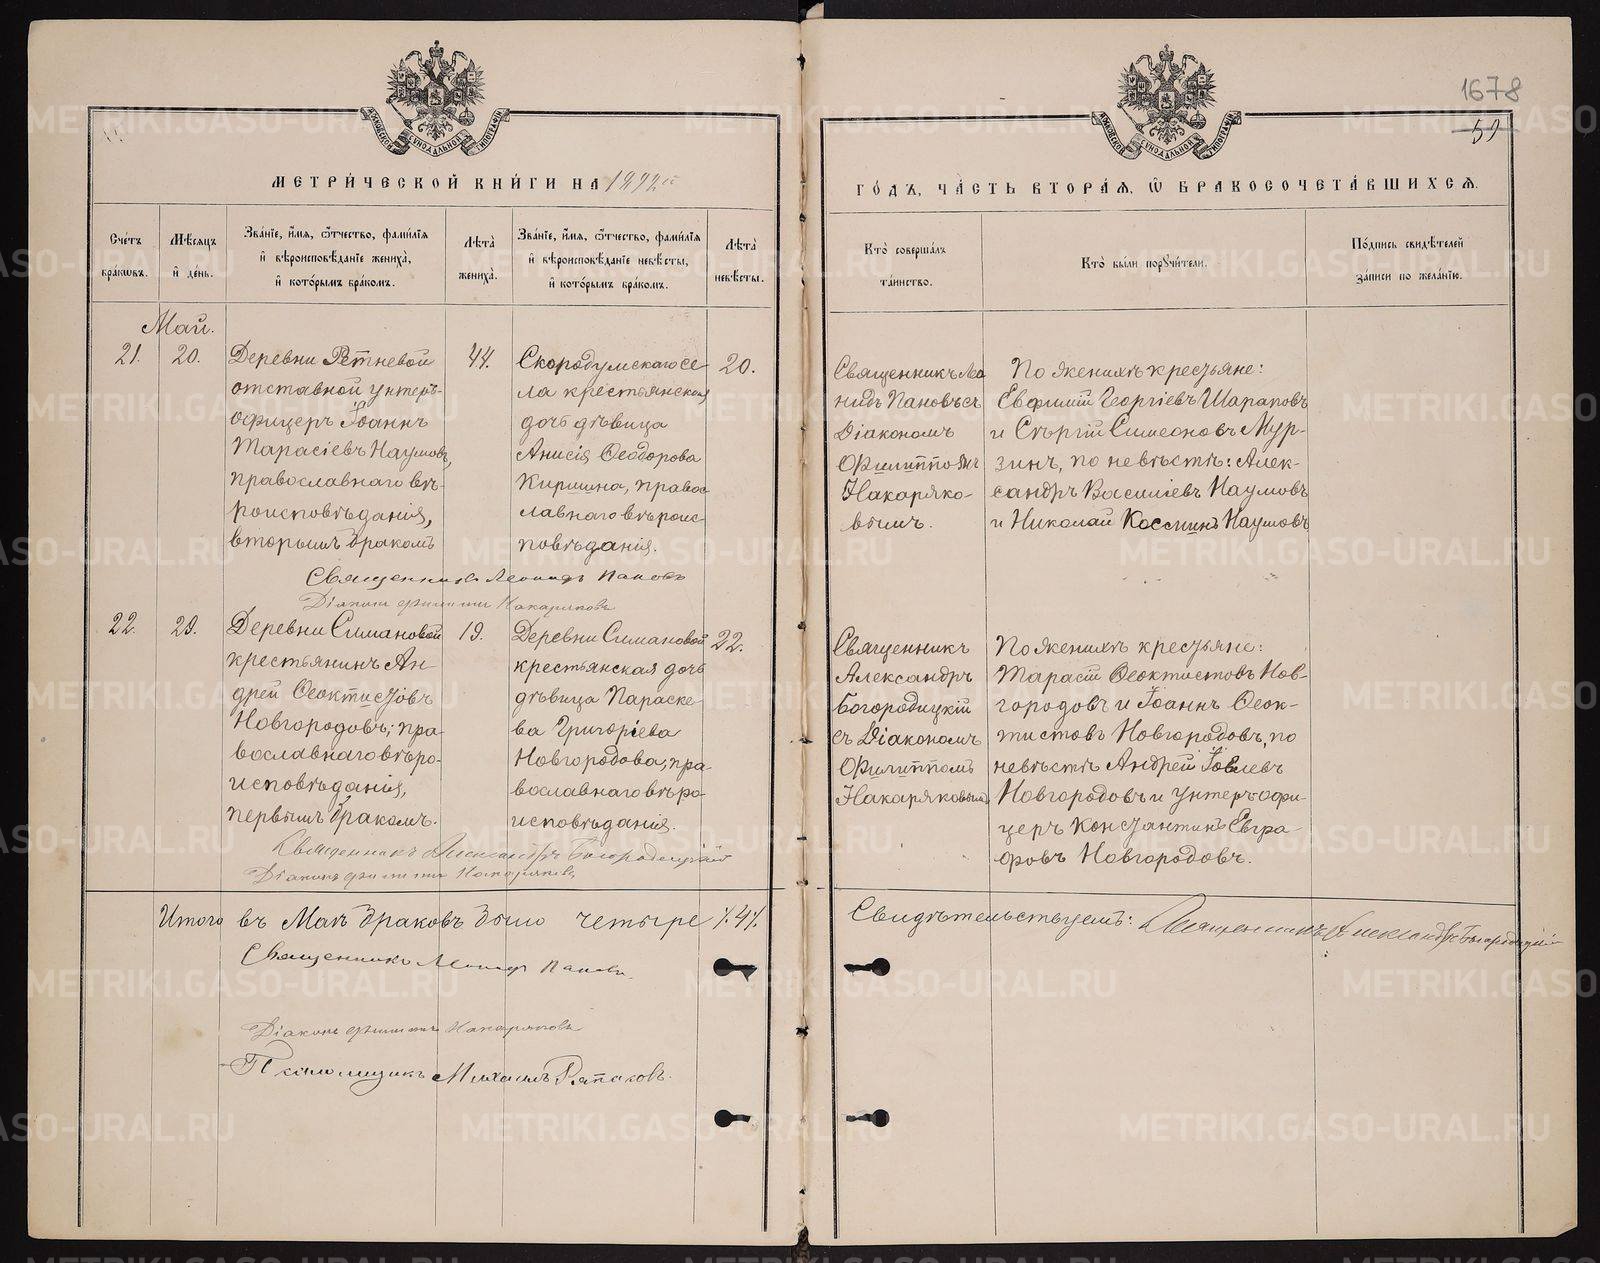 1678
59
МЕТРИЧЕСКОЙ КНИГИ НА
ГОДЪ, ЧАСТЬ ВТОРАЯ, Ѡ БРАКОСОЧЕТАВШИХСЯ.
Счетъ браковъ.
Мѣсяцъ и день.
Званіе, имя, ѿчество, фамилія и вѣроисповѣданіе жениха, и которымъ бракомъ.
Лѣта жениха.
Званіе, имя, ѿчество, фамилія и вѣроисповѣданіе невѣсты, и которымъ бракомъ.
Лѣта невѣсты.
Кто совершалъ таинство.
Кто были поручители.
Подпись свидѣтелей записи по желанію.
Май.
21.
20.
Деревни Рѣтневой
отставной унтеръ-
офицеръ Іоаннъ
Тарасіевъ Наумовъ,
православнаго вѣ-
роисповѣданія,
вторымъ бракомъ
44.
Скородумскаго се-
ла крестьянская
дочь дѣвица
Анисія Ѳеодорова
Киришна, правос-
лавнаго вѣроис-
повѣданія.
20.
Священникъ Лео
нидъ Пановъ съ
Діакономъ
Филиппомъ
Накаряко-
вымъ.
По женихѣ крестьяне:
Евфимій Георгіевъ Шараповъ
и Сергій Симеоновъ Мур-
зинъ, по невѣстѣ: Алек-
сандръ Василіевъ Наумовъ
и Николай Космин Наумовъ
Священникъ Леонидъ Пановъ
Діаконъ Филиппъ Накаряковъ
22.
29.
Деревни Симановой
крестьянинъ Ан-
дрей Ѳеоктистовъ
Новгородовъ, пра-
вославнаго вѣро-
исповѣданія,
первымъ бракомъ.
19.
Деревни Симановой
крестьянская дочь
дѣвица Параске-
ва Григоріева
Новгородова, пра-
вославнаго вѣро-
исповѣданія.
22.
Священникъ
Александръ
Богородицкій
съ Діакономъ
Филиппомъ
Накаряковымъ
По женихѣ крестьяне:
Тарасій Ѳеоктистовъ Нов-
городовъ и Іоаннъ Ѳеок-
тистовъ Новгородовъ, по
невѣстѣ Андрей Іовлевъ
Новгородовъ и унтеръ-офи-
церъ Константинъ Евгра-
фовъ Новгородовъ.
Священникъ Александръ Богородицкій
Діаконъ Филиппъ Накаряковъ
Итого въ Маѣ браковъ было четыре /:4:/
Свидѣтельствуемъ: Священникъ Александръ Богородицкій
Священникъ Леонидъ Пановъ.
Діаконъ Филиппъ Накаряковъ
Псаломщикъ Михаилъ Ряпасовъ.
METRIKI.GASO-URAL.RU